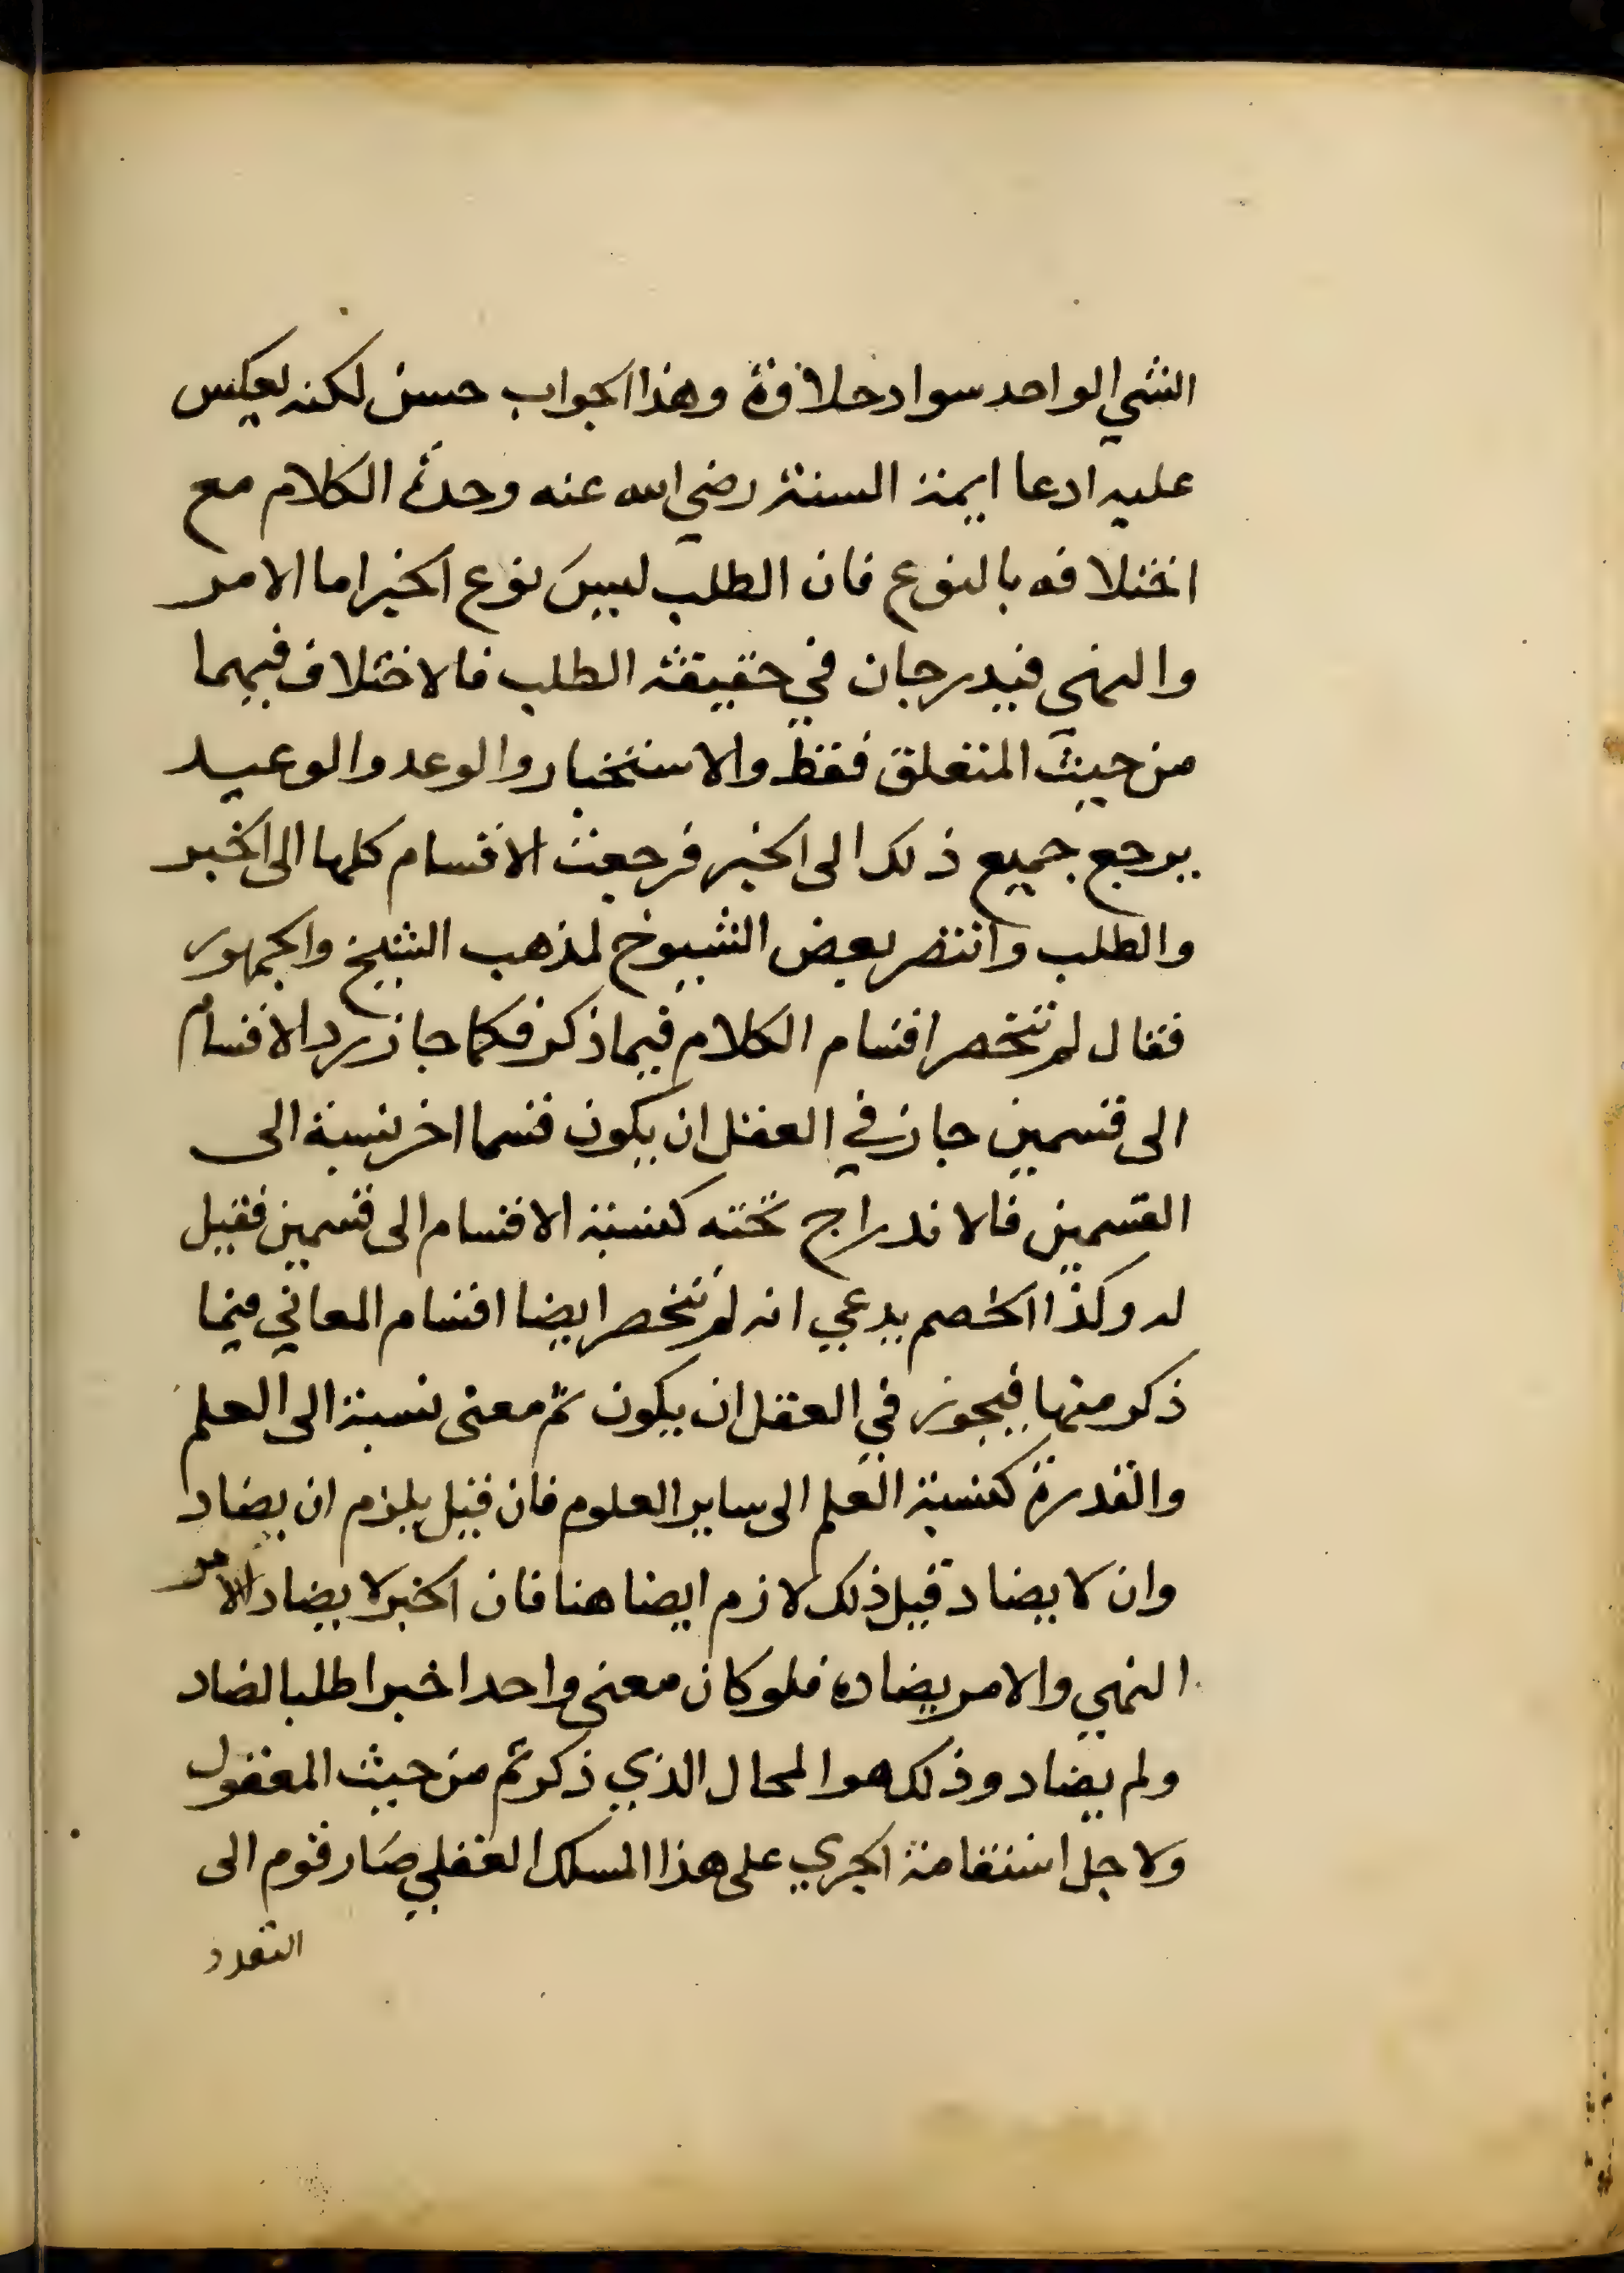 الشي الواحد سوادحلاوة وهذا الجواب حسن لكنه يعكس
عليه ادعا ايمة السنة رضي الله عنه وحدة الكلام مع
اختلافه بالنوع فان الطلب ليس نوع الخبر اما الامر
والنهي فيدرجان في حقيقة الطلب فالاختلاف فيهما
من حيث المتعلق فقط والاستخبار والوعد والوعيد
يرجع جميع ذلك الى الخبر فرجعت الاقسام كلها الى الخبر
والطلب وانتصر بعض الشيوخ لمذهب الشيخ والجمهور
فقال لم تنحصر اقسام الكلام فيما ذكر فكما جاز رد الاقسام
الى قسمين جاز في العقل ان يكون قسما اخر نسبة الى
القسمين فالاندراج تحته كنسبة الاقسام الى قسمين فقيل
له وكذا الخصم يدعي انه لم تنحصر ايضا اقسام المعاني فيما
ذكر منها فيجوز في العقل ان يكون ثم معنى نسبة الى العلم
والقدرة كنسبة العلم الى ساير العلوم فان قيل يلزم ان يضاد
وان لا يضاد قيل ذلك لازم ايضا هنا فان الخبر لا يضاد الامر
النهي والامر يضاده فلو كان معنى واحدا خبرا طلبا لضاد
ولم يضاد وذلك هو المحال الذي ذكرتم من حيث المعقول
ولاجل استقامة الجري على هذا المسلك العقلي صار قوم الى
التعدد